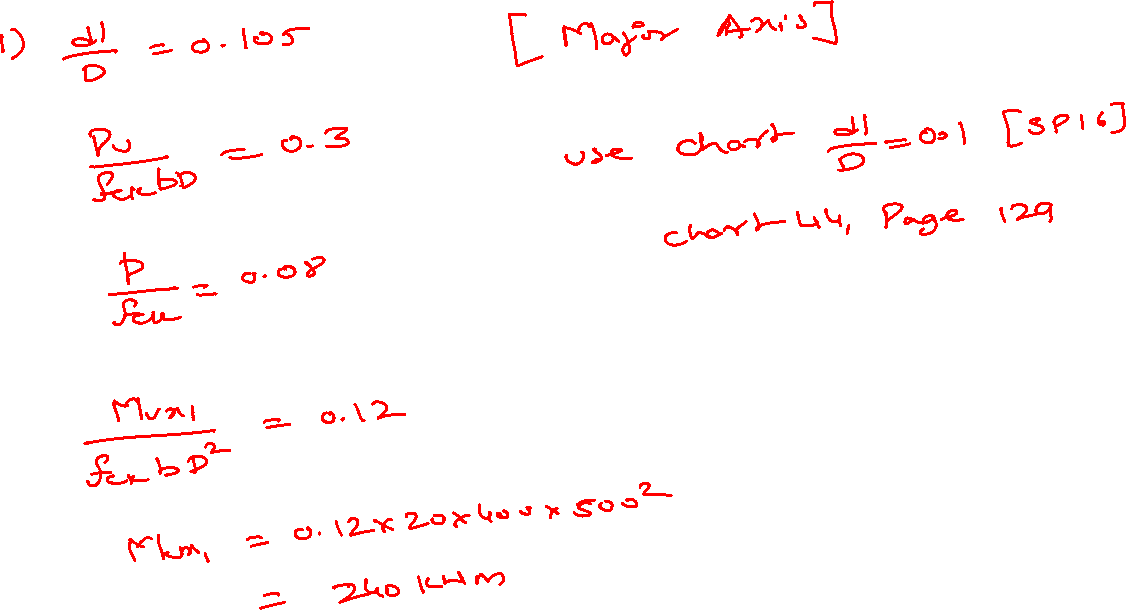 1) d'/D = 0.105 [Major Axis]
Pu/fckbD = 0.3 use chart d'/D = 0.1 [SP16]
chart 44, Page 129
p/fck = 0.08
Mux1/fckbD² = 0.12
Mux1 = 0.12 x 20 x 400 x 500²
= 240 kNm